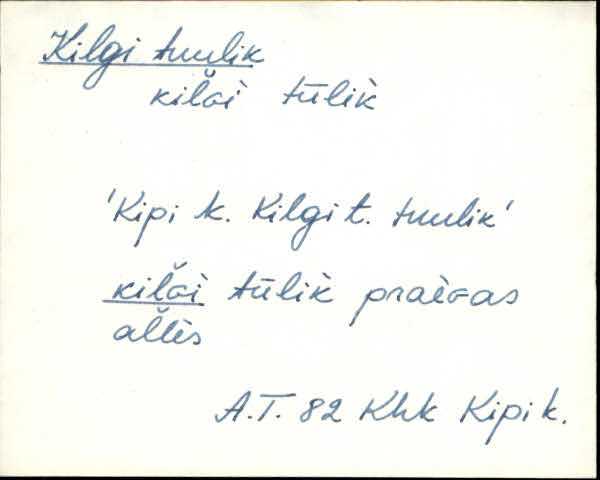 Kilgi tuulik
kil̆Gì tūlik̀
'Kipi k. Kilgi t. tuulik'
kil̆Gì tūlik̀ praèGas
al̆lès
A.T. 82 Khk Kipi k.